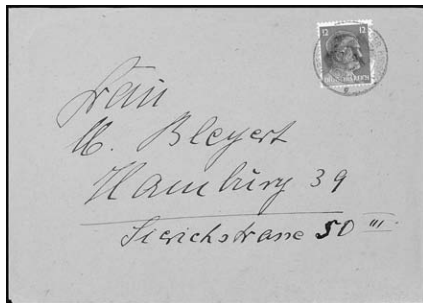 12 12
Frau
M. Bleyert
Hamburg 39
Sierichstrasse 50 III